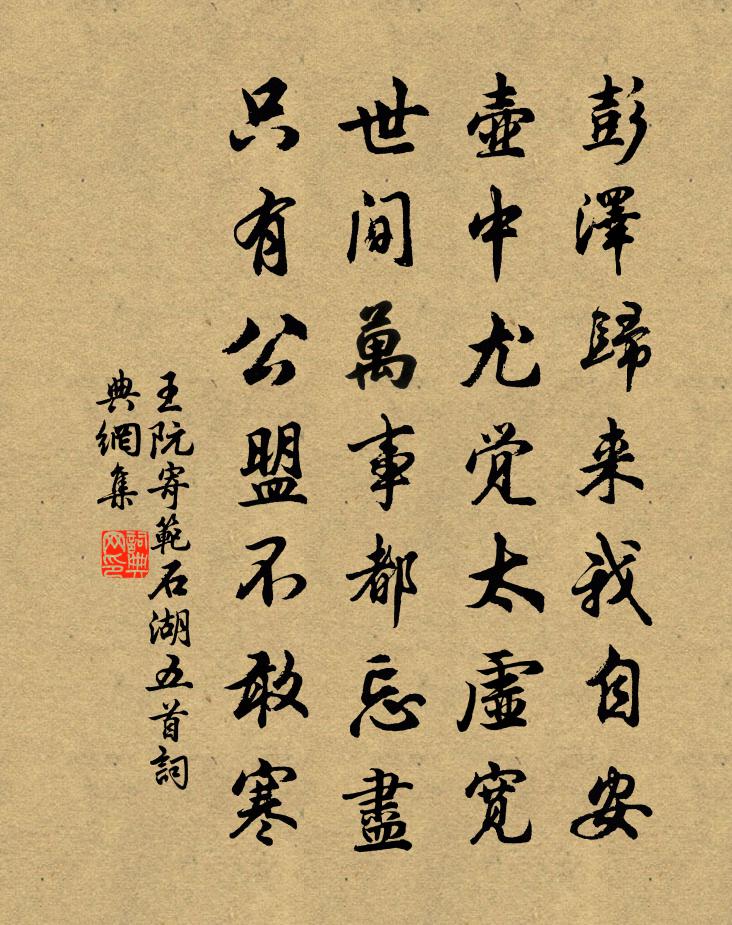 彭澤歸来我自安
壺中尤覚太虛寛
世间萬事都忘盡
只有公盟不敢寒
王阮寄範石湖五首詞
典網集
詞典
网印